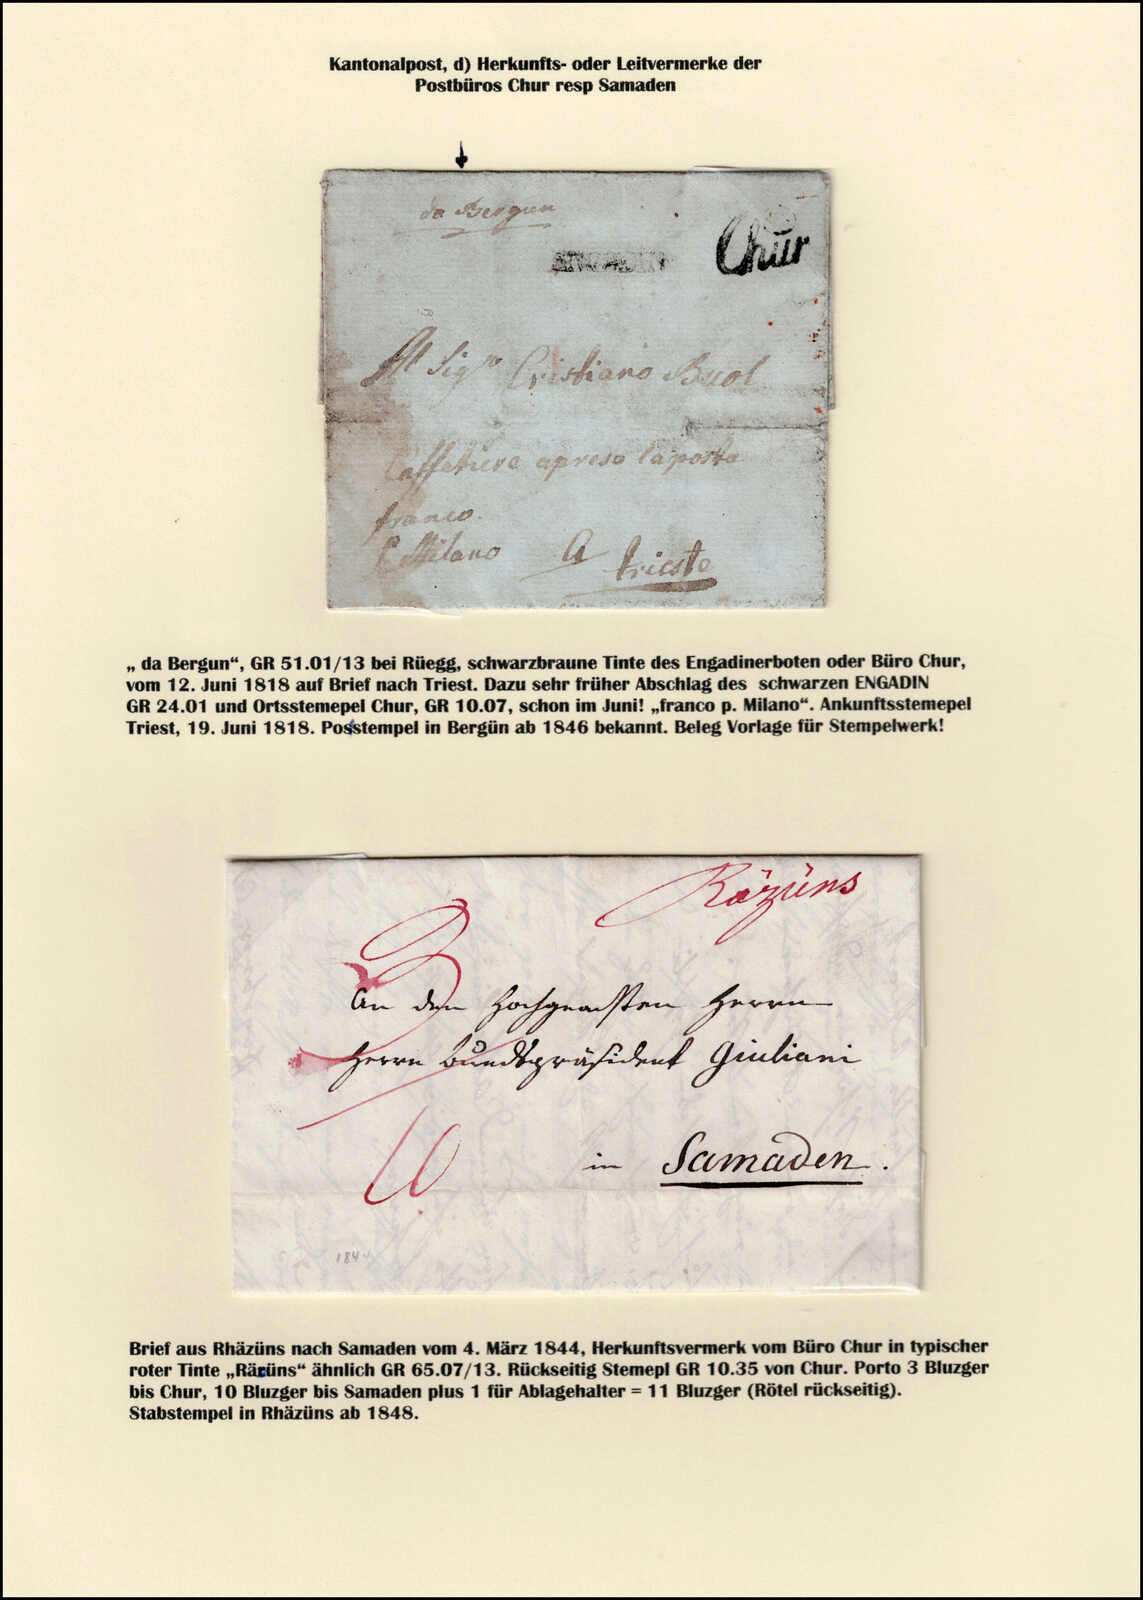 Kantonalpost, d) Herkunfts- oder Leitvermerke der
Postbüros Chur resp Samaden
da Bergun
ENGADIN
Chur
Al Sigro Cristiano Buol
Caffetiere apreso la posta
franco
p Milano A Trieste
„ da Bergun“, GR 51.01/13 bei Rüegg, schwarzbraune Tinte des Engadinerboten oder Büro Chur,
vom 12. Juni 1818 auf Brief nach Triest. Dazu sehr früher Abschlag des schwarzen ENGADIN
GR 24.01 und Ortsstemepel Chur, GR 10.07, schon im Juni! „franco p. Milano“. Ankunftsstemepel
Triest, 19. Juni 1818. Poststempel in Bergün ab 1846 bekannt. Beleg Vorlage für Stempelwerk!
Räzüns
3
An den Hochgeachten Herrn
Herrn Bundspräsident Giuliani
10
in Samaden.
Brief aus Rhäzüns nach Samaden vom 4. März 1844, Herkunftsvermerk vom Büro Chur in typischer
roter Tinte „Räzüns“ ähnlich GR 65.07/13. Rückseitig Stemepl GR 10.35 von Chur. Porto 3 Bluzger
bis Chur, 10 Bluzger bis Samaden plus 1 für Ablagehalter = 11 Bluzger (Rötel rückseitig).
Stabstempel in Rhäzüns ab 1848.